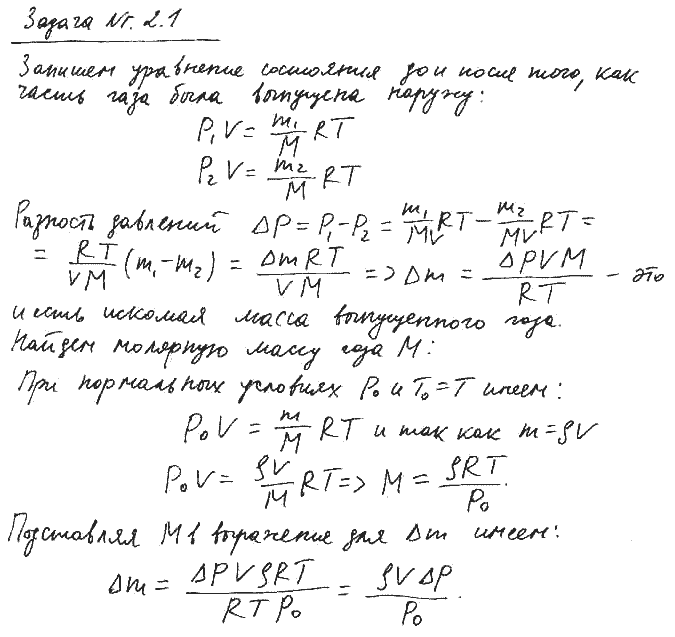 Задача №. 2.1
Запишем уравнение состояния до и после того, как
часть газа была выпущена наружу:
P₁V = m₁/M RT
P₂V = m₂/M RT
Разность давлений ΔP = P₁ - P₂ = m₁/MV RT - m₂/MV RT =
= RT/VM (m₁ - m₂) = ΔmRT/VM => Δm = ΔPVM/RT - это
и есть искомая масса выпущенного газа.
Найдем молярную массу газа M:
При нормальных условиях P₀ и T₀=T имеем:
P₀V = m/M RT и так как m = ρV
P₀V = ρV/M RT => M = ρRT/P₀.
Подставляя M в выражение для Δm имеем:
Δm = ΔPVρRT/RTP₀ = ρVΔP/P₀.